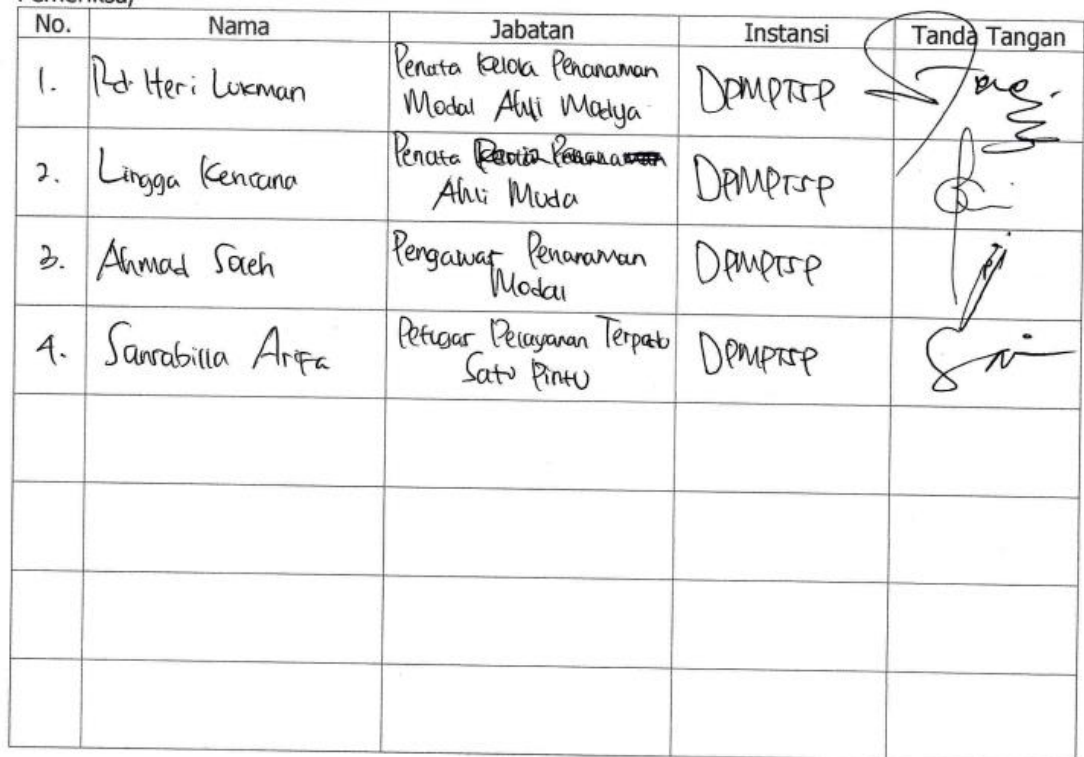 Pemeriksa,
No. Nama Jabatan Instansi Tanda Tangan
1. Rd. Heri Lukman Penata Kelola Penanaman Modal Ahli Madya DPMPTSP
2. Lingga Kencana Penata Ahli Muda DPMPTSP
3. Ahmad Saeh Pengawas Penanaman Modal DPMPTSP
4. Sansabilla Arifa Petugas Pelayanan Terpadu Satu Pintu DPMPTSP